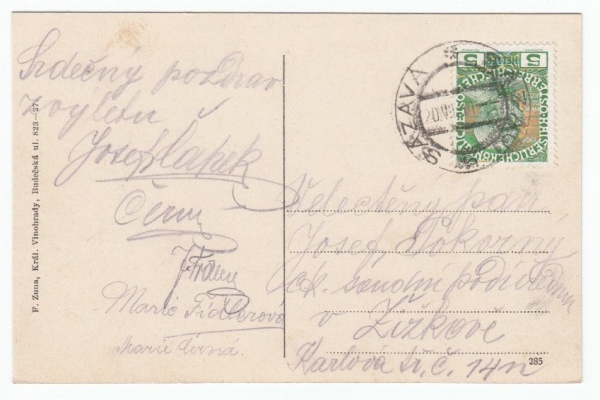 Srdečný pozdrav
z výletu
Josef Čapek
Černý
Marie Fidlerová
Marie Černá
F. Zuna, Král. Vinohrady, Budečská ul. 823—27.
SÁZAVA
5 5
Velectěný pan
Josef Pokorný
c.k. soudní
v Žižkově
Karlova tř. č. 14n
285